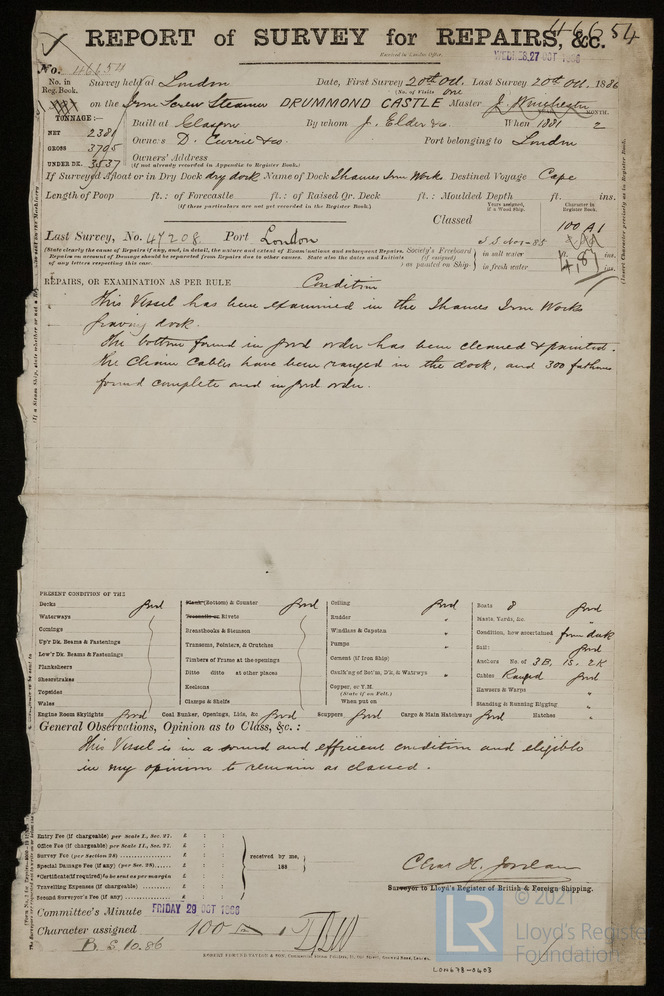 46654
REPORT of SURVEY for REPAIRS, &c.
Received in London Office,
WEDNES. 27 OCT 1886
No. 46654
No. in Reg. Book. Survey held at London Date, First Survey 20th Oct. Last Survey 20th Oct. 1886
(No. of Visits one
on the Iron Screw Steamer DRUMMOND CASTLE Master J. Winchester
TONNAGE:— MONTH.
NET 2381 Built at Glasgow By whom J. Elder & Co. When 1881 2
GROSS 3705 Owners D. Currie & Co. Port belonging to London
UNDER DK. 3537 Owners' Address
(If not already recorded in Appendix to Register Book.)
If Surveyed Afloat or in Dry Dock dry dock Name of Dock Thames Iron Work Destined Voyage Cape
Length of Poop ft.: of Forecastle ft.: of Raised Qr. Deck ft.: Moulded Depth ft. ins.
(If these particulars are not yet recorded in the Register Book.)
Years assigned, if a Wood Ship. Character in Register Book.
Classed 100 A1
Last Survey, No. 47208. Port London
(State clearly the cause of Repairs if any, and, in detail, the nature and extent of Examinations and subsequent Repairs.
Repairs on account of Damage should be separated from Repairs due to other causes. State also the dates and Initials
of any letters respecting this case.
Society's Freeboard (if assigned) as painted on Ship in salt water ft. ins.
in fresh water ins.
4,87
REPAIRS, OR EXAMINATION AS PER RULE Condition
This Vessel has been examined in the Thames Iron Works
graving dock.
The bottom found in good order has been cleaned & painted.
The Chain Cables have been ranged in the dock, and 300 fathoms
found complete and in good order.
PRESENT CONDITION OF THE
Decks good
Waterways
Comings
Up'r Dk. Beams & Fastenings
Low'r Dk. Beams & Fastenings
Planksheers
Sheerstrakes
Topsides
Wales
Plank (Bottom) & Counter good
Treenails or Rivets
Breasthooks & Stemson
Transoms, Pointers, & Crutches
Timbers of Frame at the openings
Ditto ditto at other places
Keelsons
Clamps & Shelfs
Ceiling good
Rudder "
Windlass & Capstan "
Pumps "
Cement (if Iron Ship) "
Caulking of Bot'm, D'k, & Watrwys "
Copper, or Y.M.
(State if on Felt.)
When put on
Boats 8 good
Masts, Yards, &c. "
Condition, how ascertained from deck
Sails good
Anchors No. of 3B. 1S. 2K
Cables Ranged good
Hawsers & Warps "
Standing & Running Rigging "
Engine Room Skylights good Coal Bunker, Openings, Lids, &c good Scuppers good Cargo & Main Hatchways good Hatches "
General Observations, Opinion as to Class, &c.:
This Vessel is in a sound and efficient condition and eligible
in my opinion to remain as classed.
Entry Fee (if chargeable) per Scale I., Sec. 27. £ : :
Office Fee (if chargeable) per Scale II., Sec. 27. £ : :
Survey Fee (per Section 28) £ : :
Special Damage Fee (if any) (per Sec. 28) £ : :
*Certificate (if required) to be sent as per margin £ : :
Travelling Expenses (if chargeable) £ : :
Second Surveyor's Fee (if any) £ : :
received by me,
188
Chas H. Jordan
Surveyor to Lloyd's Register of British & Foreign Shipping.
Committee's Minute FRIDAY 29 OCT 1886
Character assigned 100 A 1
B.S. 10.86
ROBERT EDMUND TAYLOR & SON,
LON678-0403
© 2021
LR
Lloyd's Register
Foundation